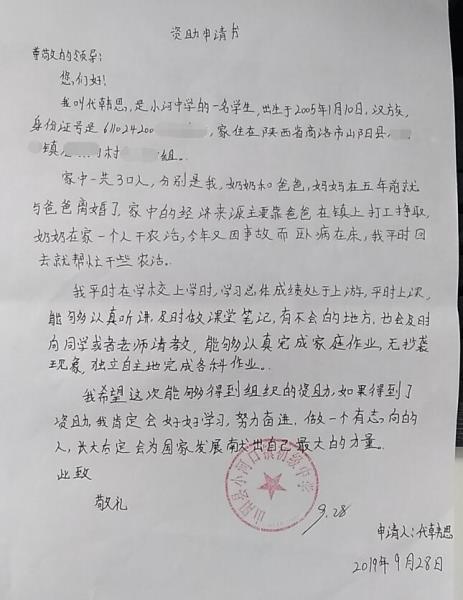 资助申请书
尊敬的领导:
您们好!
我叫代韩思,是小河中学的一名学生,出生于2005年1月10日,汉族,
身份证号是611024200 ,家住在陕西省商洛市山阳县
镇 村 组。
家中一共3口人,分别是我,奶奶和爸爸,妈妈在五年前就
与爸爸离婚了,家中的经济来源主要靠爸爸在镇上打工挣取,
奶奶在家一个人干农活,今年又因事故而卧病在床,我平时回
去就帮忙干些农活。
我平时在学校上学时,学习总体成绩处于上游,平时上课,
能够认真听讲,及时做课堂笔记,有不会的地方,也会及时
向同学或者老师请教,能够认真完成家庭作业,无抄袭
现象,独立自主地完成各科作业。
我希望这次能够得到组织的资助,如果得到了
资助,我肯定会好好学习,努力奋进,做一个有志向的
人,长大后定会为国家发展献出自己最大的力量。
此致
敬礼
山阳县小河口镇初级中学
9.28
申请人:代韩思
2019年9月28日